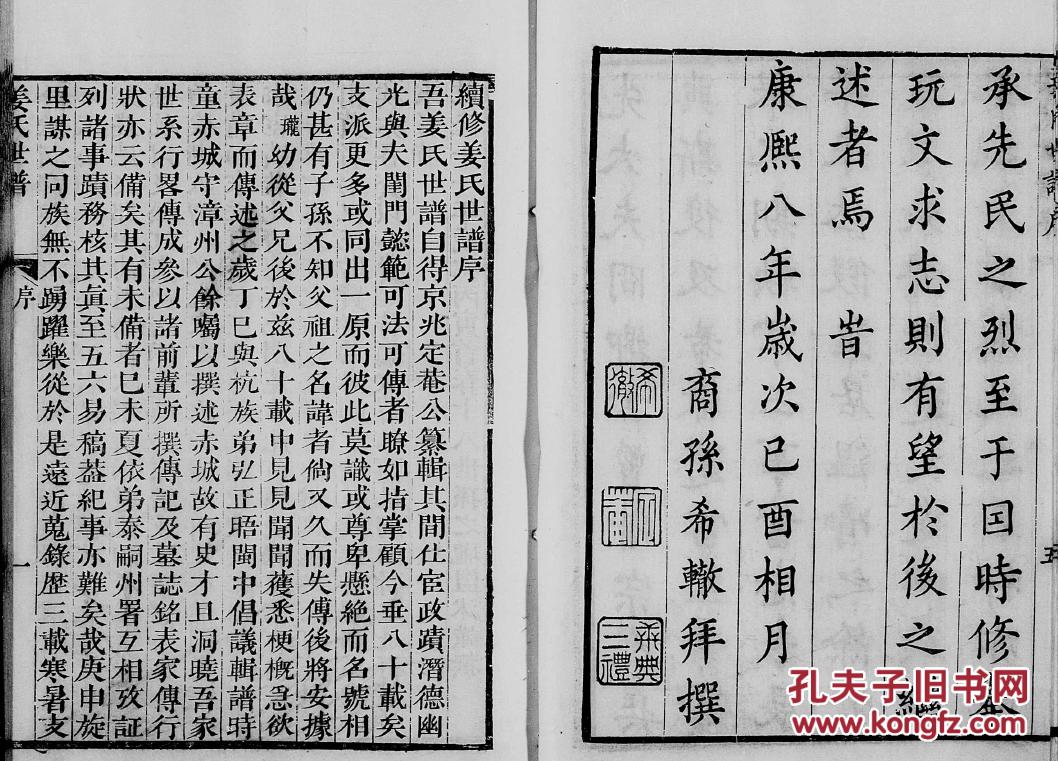 承先民之烈至于因時修
玩文求志則有望於後之繼
述者焉
旹
康熈八年歲次己酉相月
裔孫希轍拜撰
希轍
典三禮
續修姜氏世譜序
吾姜氏世譜自得京兆定菴公纂輯其間仕宦政蹟潛德幽
光與夫閨門懿範可法可傳者瞭如指掌顧今垂八十載矣
支派更多或同出一原而彼此莫識或尊卑懸絶而名號相
仍甚有子孫不知父祖之名諱者倘又久而失傳後將安據
哉瓏幼從父兄後於兹八十載中見見聞聞獲悉梗概急欲
表章而傳述之歲丁巳與杭族弟弘正晤閩中倡議輯譜時
童赤城守漳州公餘囑以撰述赤城故有史才且洞曉吾家
世系行畧傳成參以諸前輩所撰傳記及墓誌銘表家傳行
狀亦云備矣其有未備者巳未夏依弟泰嗣州署互相攷証
列諸事蹟務核其眞至五六易稿葢紀事亦難矣哉庚申旋
里謀之同族無不踴躍樂從於是遠近蒐錄歴三載寒暑支
姜氏世譜
序
一
孔夫子旧书网
www.kongfz.com